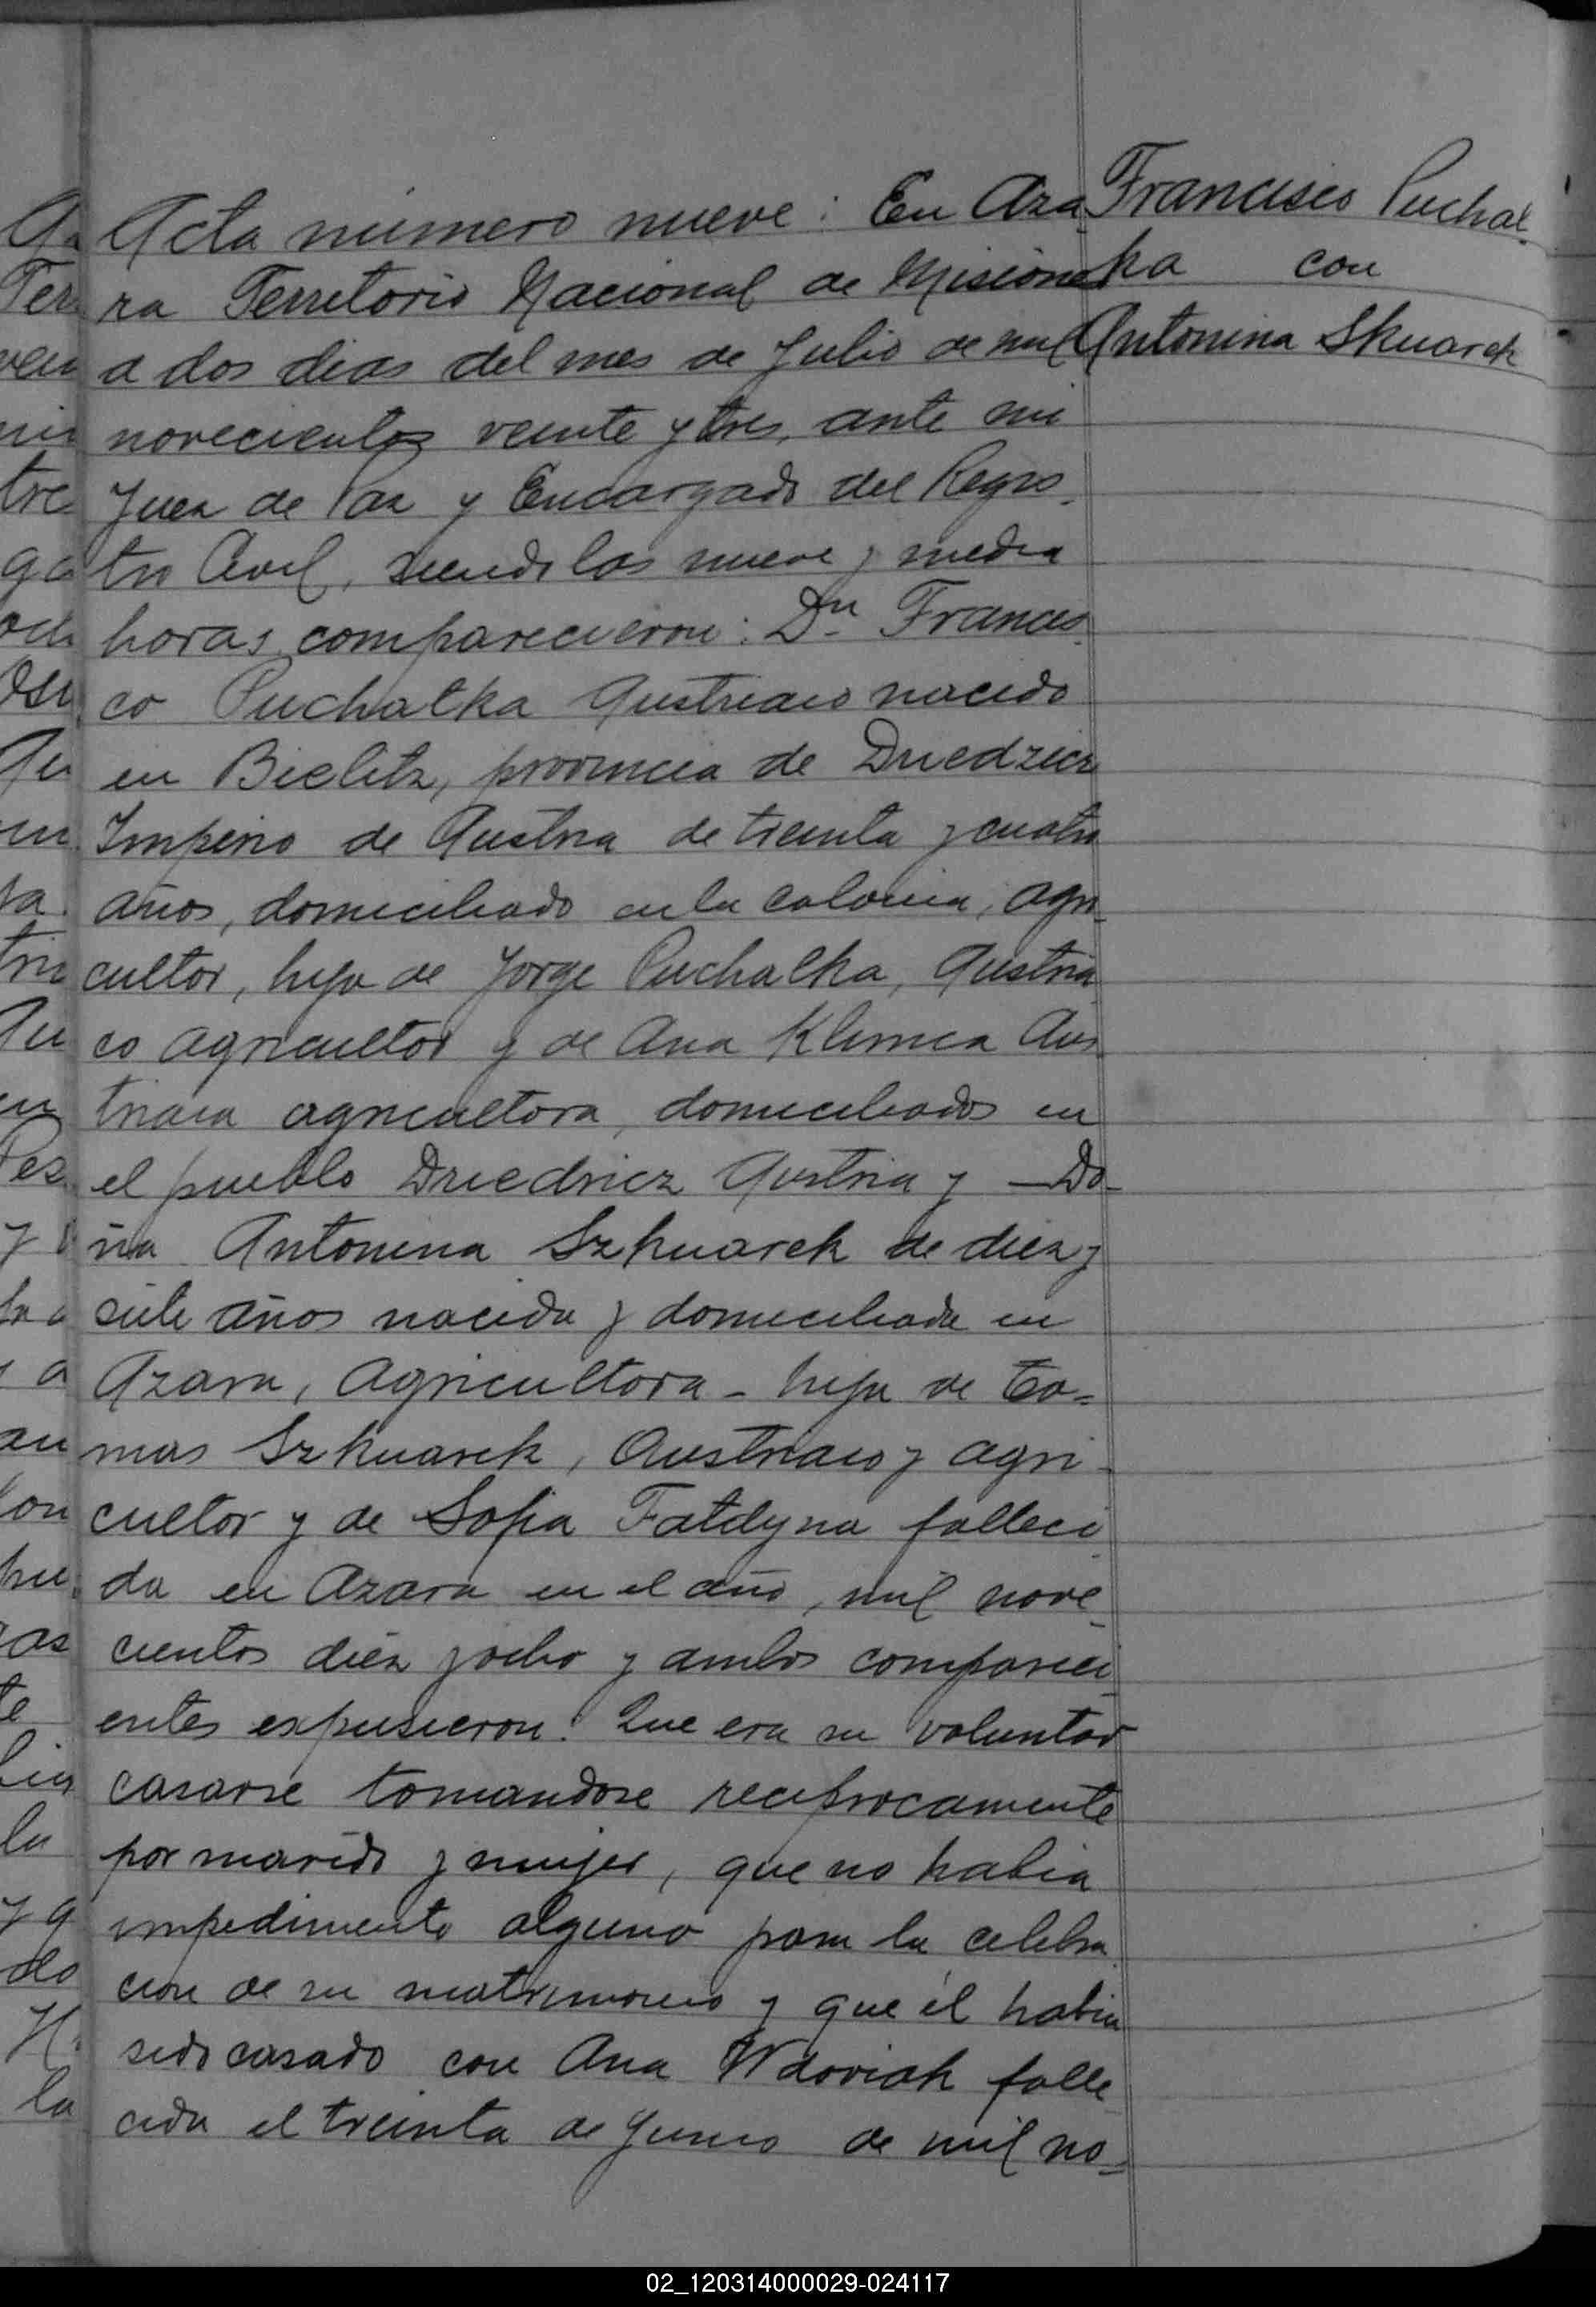 Francisco Puchal-
ka con
Antonina Skuarek
Acta número nueve: En Aza-
ra Territorio Nacional de Misiones
a dos dias del mes de Julio de mil
novecientos veinte y tres, ante mi
Juez de Paz y Encargado del Regis-
tro Civil, siendo las nueve y media
horas comparecieron: Dn Francis-
co Puchalka Austriaco nacido
en Bielitz, provincia de Dziedzicz
Imperio de Austria de treinta y cuatro
años, domiciliado en la colonia, agri-
cultor, hijo de Jorge Puchalka, Austria-
co agricultor y de Ana Klimca Aus-
triaca agricultora, domiciliados en
el pueblo Driedricz Austria y — Do-
ña Antonina Szkuarek de diez y
siete años nacida y domiciliada en
Azara, Agricultora - hija de To-
mas Szkuarek, Austriaco y agri-
cultor y de Sofia Fatdyna falleci-
da en Azara en el año, mil nove-
cientos diez y ocho y ambos compareci-
entes expusieron: Que era su voluntad
casarse tomandose reciprocamente
por marido y mujer, que no habia
impedimento alguno para la celebra-
cion de su matrimonio y que él habia
sido casado con Ana Wdoviak falle-
cida el treinta de Junio de mil no-
02_120314000029-024117